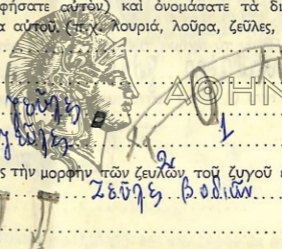 φήσατε αὐτόν) καὶ ὀνομάσατε τὰ δι
α αὐτοῦ. (π.χ. λουριά, λοῦρα, ζεῦλες,
ζεῦλες
ΑΘΗΝ
ζεῦλες 1
2
ς τὴν μορφὴν τῶν ζευλῶν τοῦ ζυγοῦ
Ζεῦλες βοδιῶν